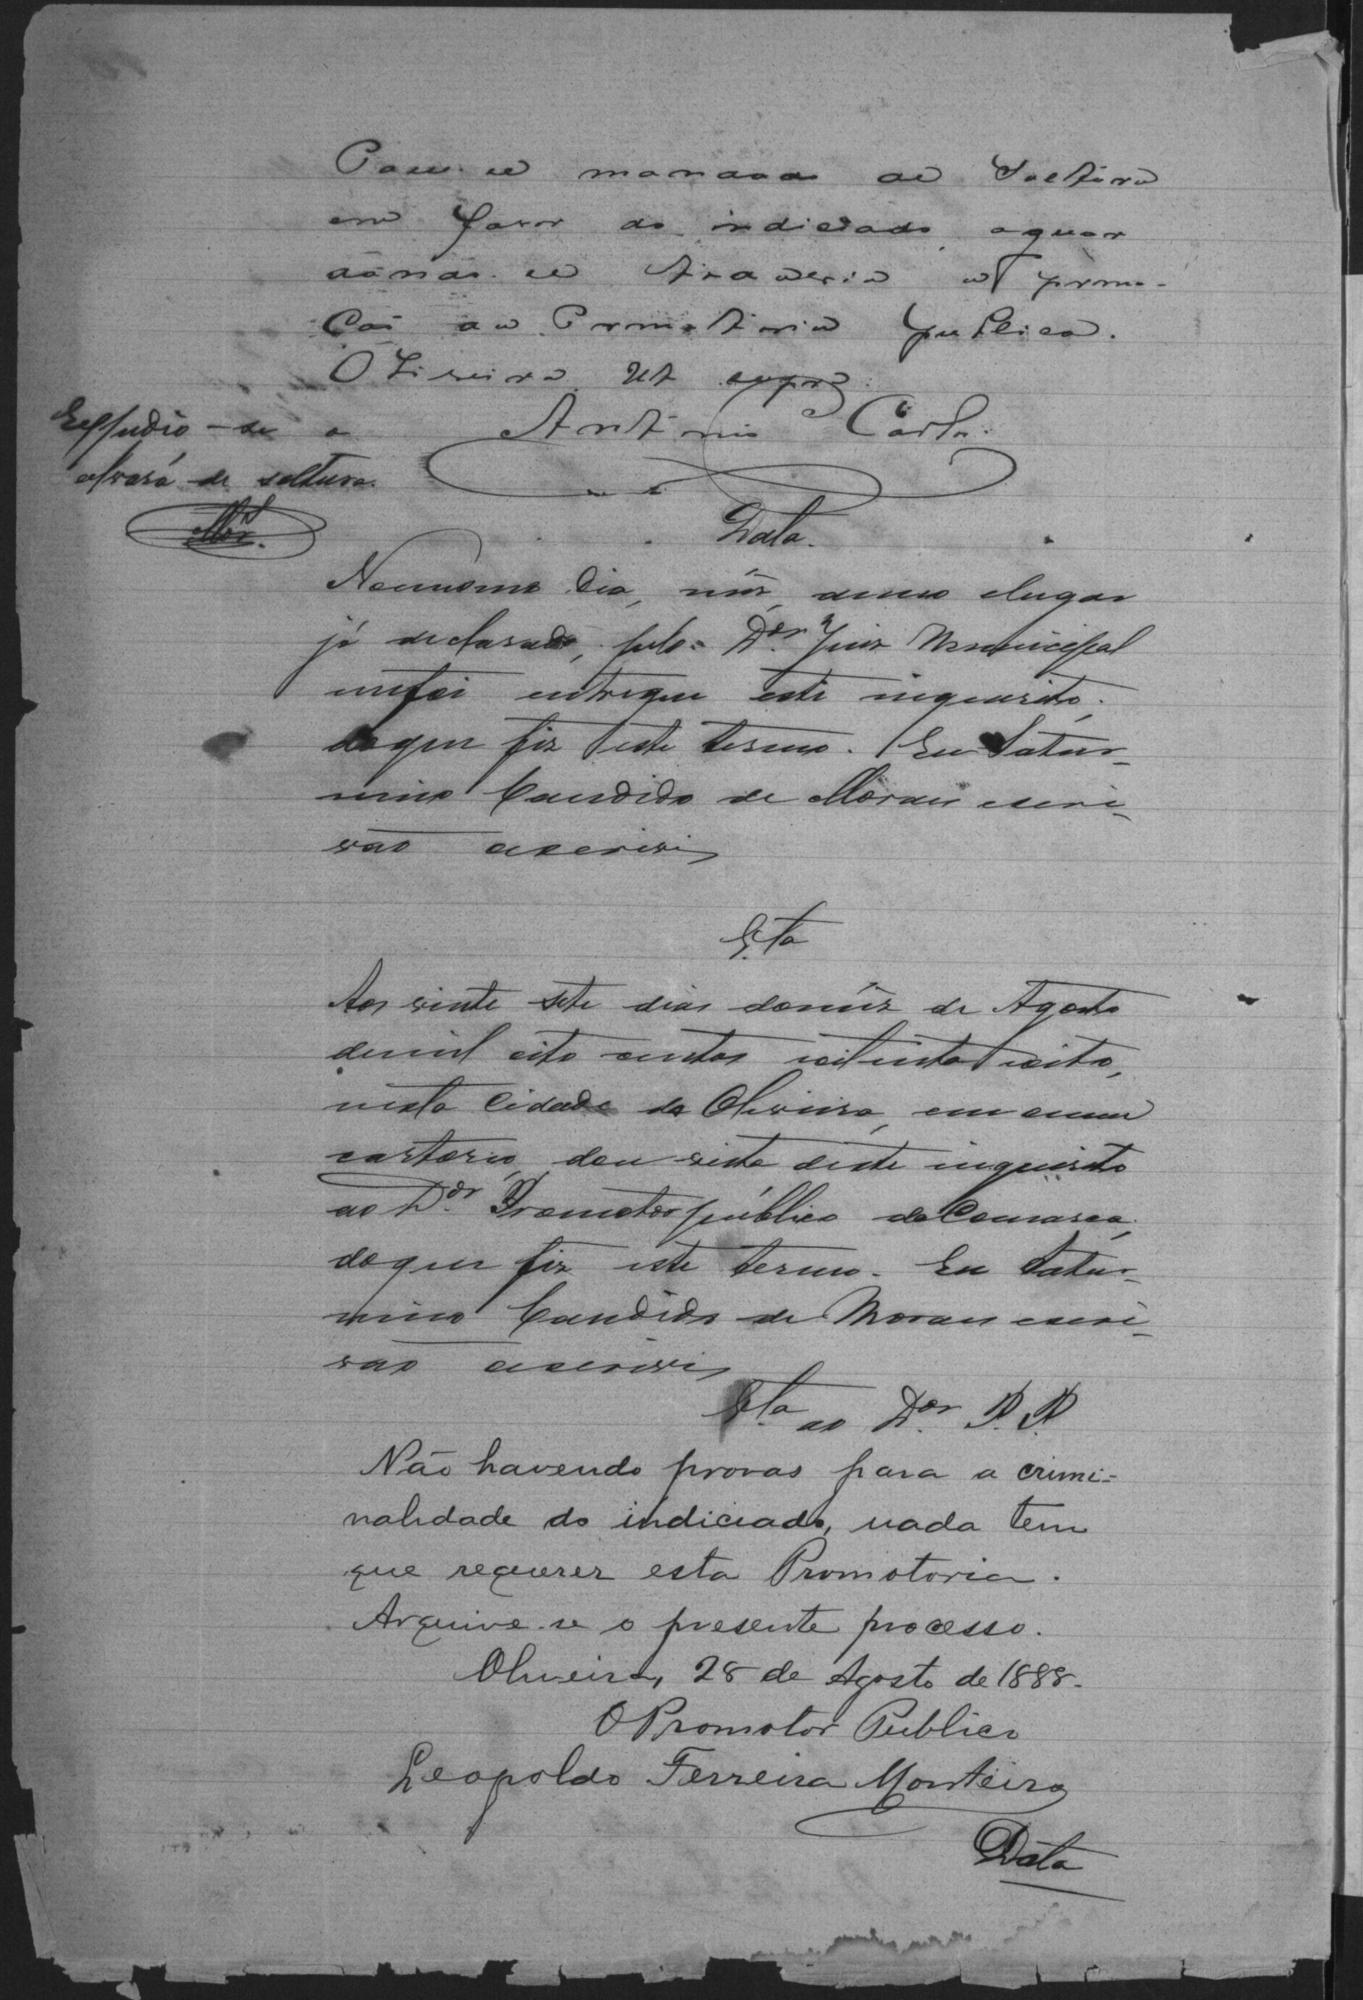 Passe se mandado de Soltura
em favor do indiciado, aguar
dando. se todavia a promo-
ção da Promotoria publica.
Oliveira Ut supra.
Antonio Carlo.
Espedio-se o
alvará de soltura.
Data.
No mesmo dia, mês, anno elugar
já declarado, pelo Dor. Juiz Municipal
mefoi entregue este inquerito,
doque fiz este termo. Eu Satur-
nino Candido de Moraes escri-
vão oescrevi
Vta
Aos vinte sete dias domês de Agosto
demil oito centos e oitenta e oito,
nesta Cidade de Oliveira, em meu
cartorio, dou vista deste inquerito
ao Dor. Promotor público da Comarca,
doque fiz este termo. Eu Satur-
nino Candido de Moraes escri-
vão oescrevi
Vta ao Dor. P. P.
Não havendo provas para a crimi-
nalidade do indiciado, nada tem
que requerer esta Promotoria.
Archive-se o presente processo.
Oliveira, 28 de Agosto de 1888.
O Promotor Publico
Leopoldo Ferreira Monteiro
Data